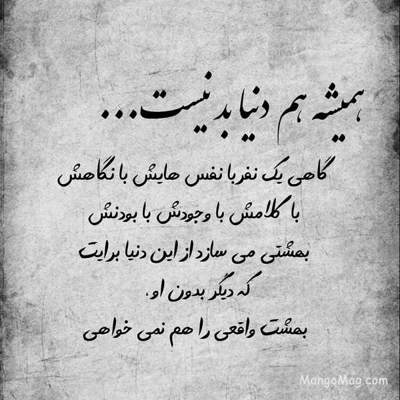 همیشه هم دنیا بد نیست...
گاهی یک نفر با نفس هایش با نگاهش
با کلامش با وجودش با بودنش
بهشتی می سازد از این دنیا برایت
که دیگر بدون او،
بهشت واقعی را هم نمی خواهی
MangoMag.com